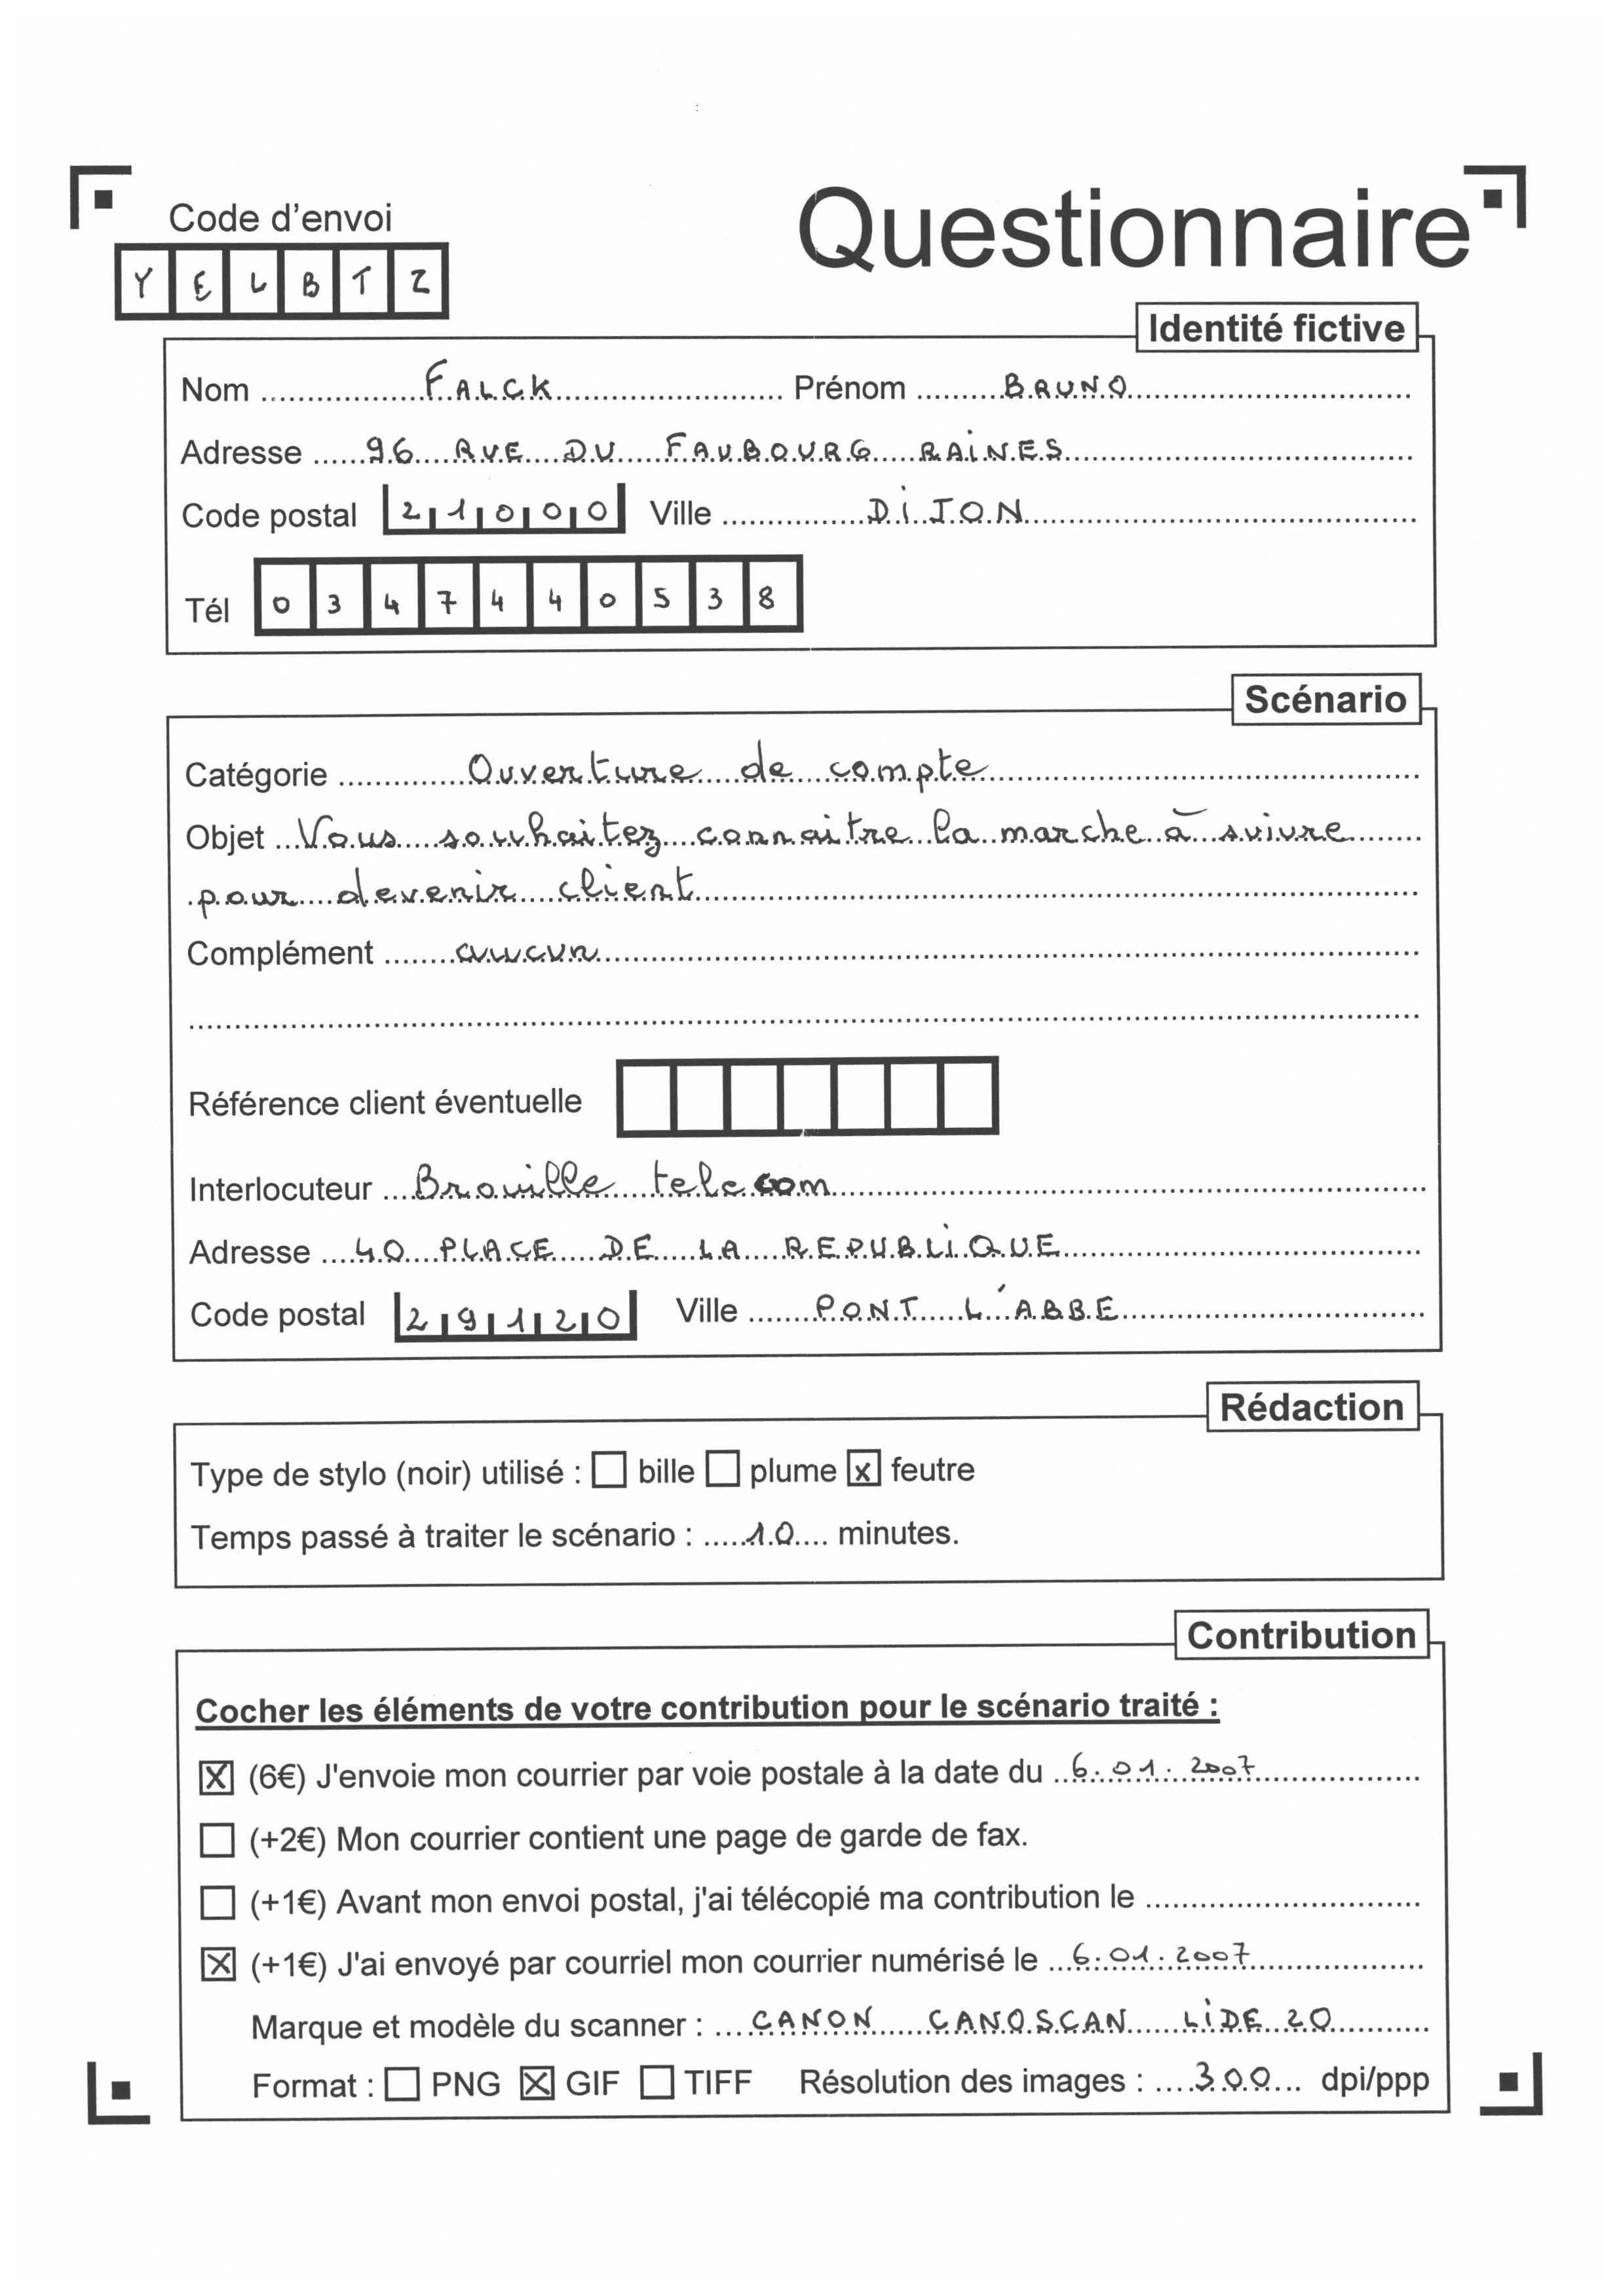 Code d'envoi
Questionnaire
Y E L B T Z
Identité fictive
Nom FALCK Prénom BRUNO
Adresse 96 RUE DU FAUBOURG RAINES
Code postal 21000 Ville DIJON
Tél 0347440538
Scénario
Catégorie Ouverture de compte
Objet Vous souhaitez connaitre la marche à suivre
pour devenir client
Complément aucun
Référence client éventuelle
Interlocuteur Brouille telecom
Adresse 40 PLACE DE LA REPUBLIQUE
Code postal 29120 Ville PONT L'ABBE
Rédaction
Type de stylo (noir) utilisé : ☐ bille ☐ plume ☒ feutre
Temps passé à traiter le scénario : 10 minutes.
Contribution
Cocher les éléments de votre contribution pour le scénario traité :
☒ (6€) J'envoie mon courrier par voie postale à la date du 6.01.2007
☐ (+2€) Mon courrier contient une page de garde de fax.
☐ (+1€) Avant mon envoi postal, j'ai télécopié ma contribution le
☒ (+1€) J'ai envoyé par courriel mon courrier numérisé le 6.01.2007
Marque et modèle du scanner : CANON CANOSCAN LIDE 20
Format : ☐ PNG ☒ GIF ☐ TIFF Résolution des images : 300 dpi/ppp